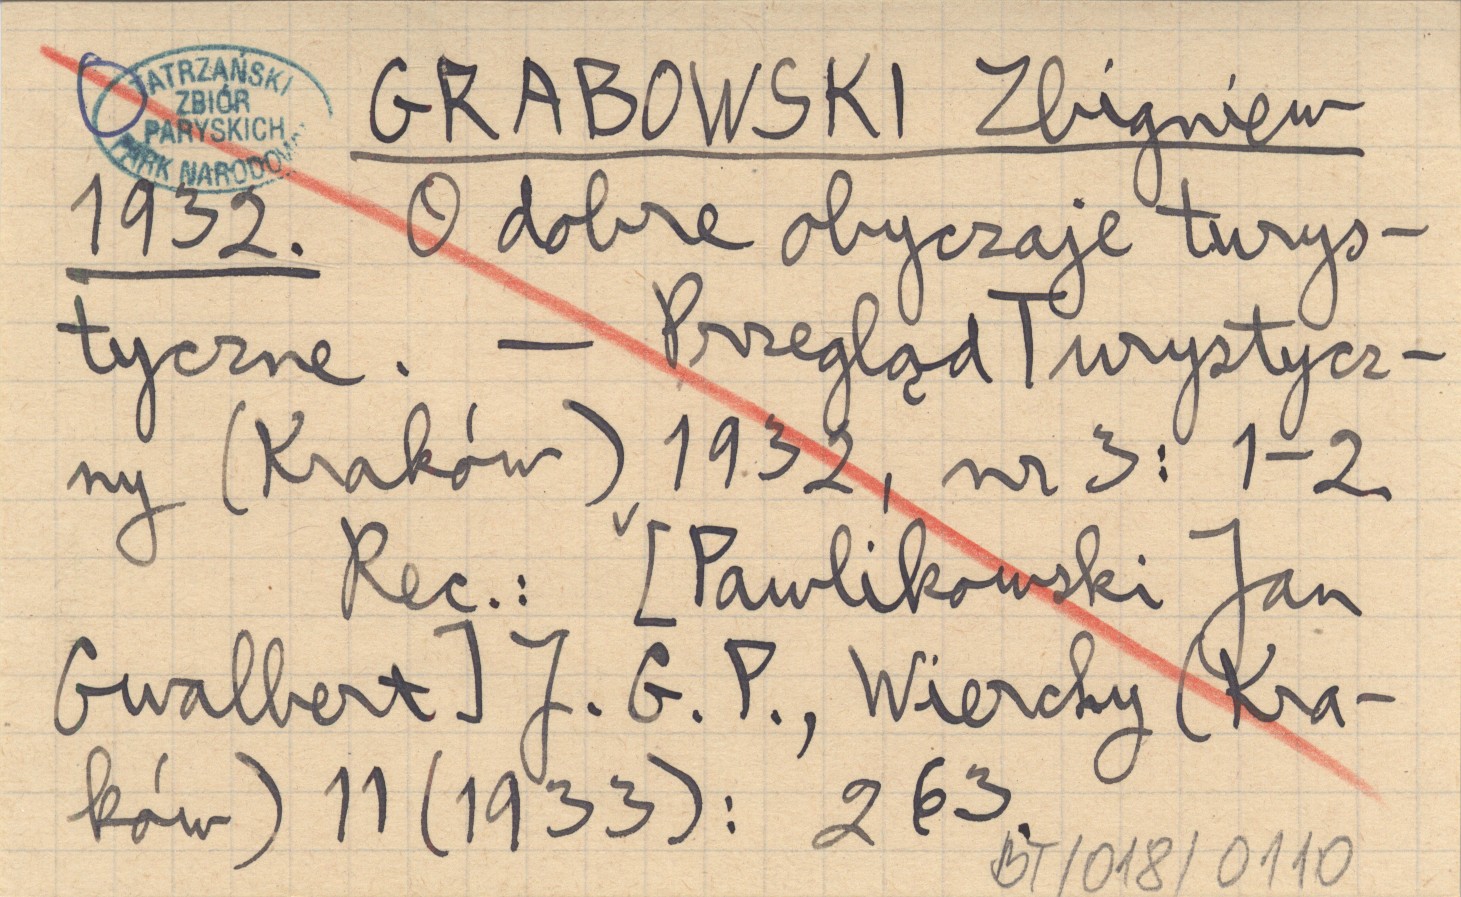 TATRZAŃSKI
ZBIÓR
PARYSKICH
PARK NARODOWY
GRABOWSKI Zbigniew
1932. O dobre obyczaje turys-
tyczne. — Przegląd Turystycz-
ny (Kraków) 1932, nr 3: 1-2
Rec.: [Pawlikowski Jan
Gwalbert] J. G. P., Wierchy (Kra-
ków) 11 (1933): 263.
BT/018/0110